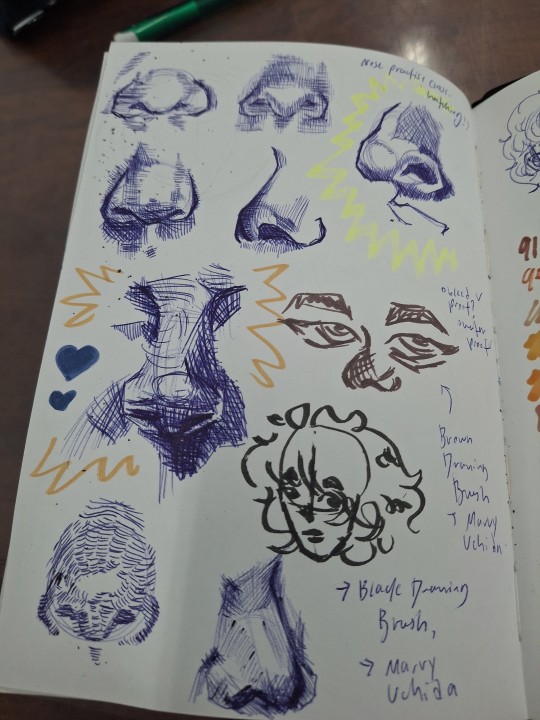 Nose practise cross-
hatching!!
proof?
water
proof
Brown
Drawing
Brush
→ Marvy
Uchida
→ Black Drawing
Brush,
→ Marvy
Uchida